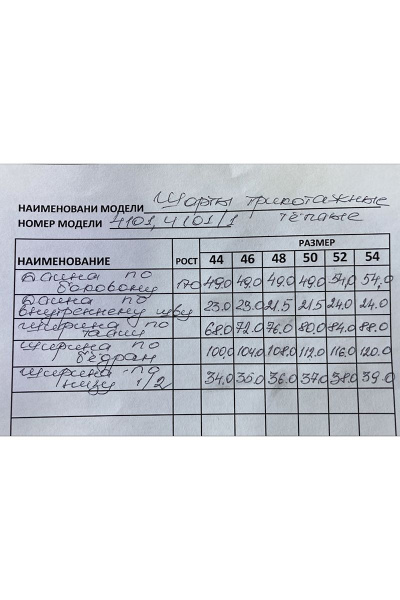 НАИМЕНОВАНИ МОДЕЛИ Шорты трикотажные
тёплые
НОМЕР МОДЕЛИ 4101, 4101/1
НАИМЕНОВАНИЕ РОСТ РАЗМЕР
44 46 48 50 52 54
Длина по боковому 170 49.0 49.0 49.0 49.0 54.0 54.0
Длина по внутреннему шву 23.0 23.0 21.5 21.5 24.0 24.0
Ширина по талии 68.0 72.0 76.0 80.0 84.0 88.0
Ширина по бёдрам 100.0 104.0 108.0 112.0 116.0 120.0
Ширина по низу 1/2 34.0 35.0 36.0 37.0 38.0 39.0